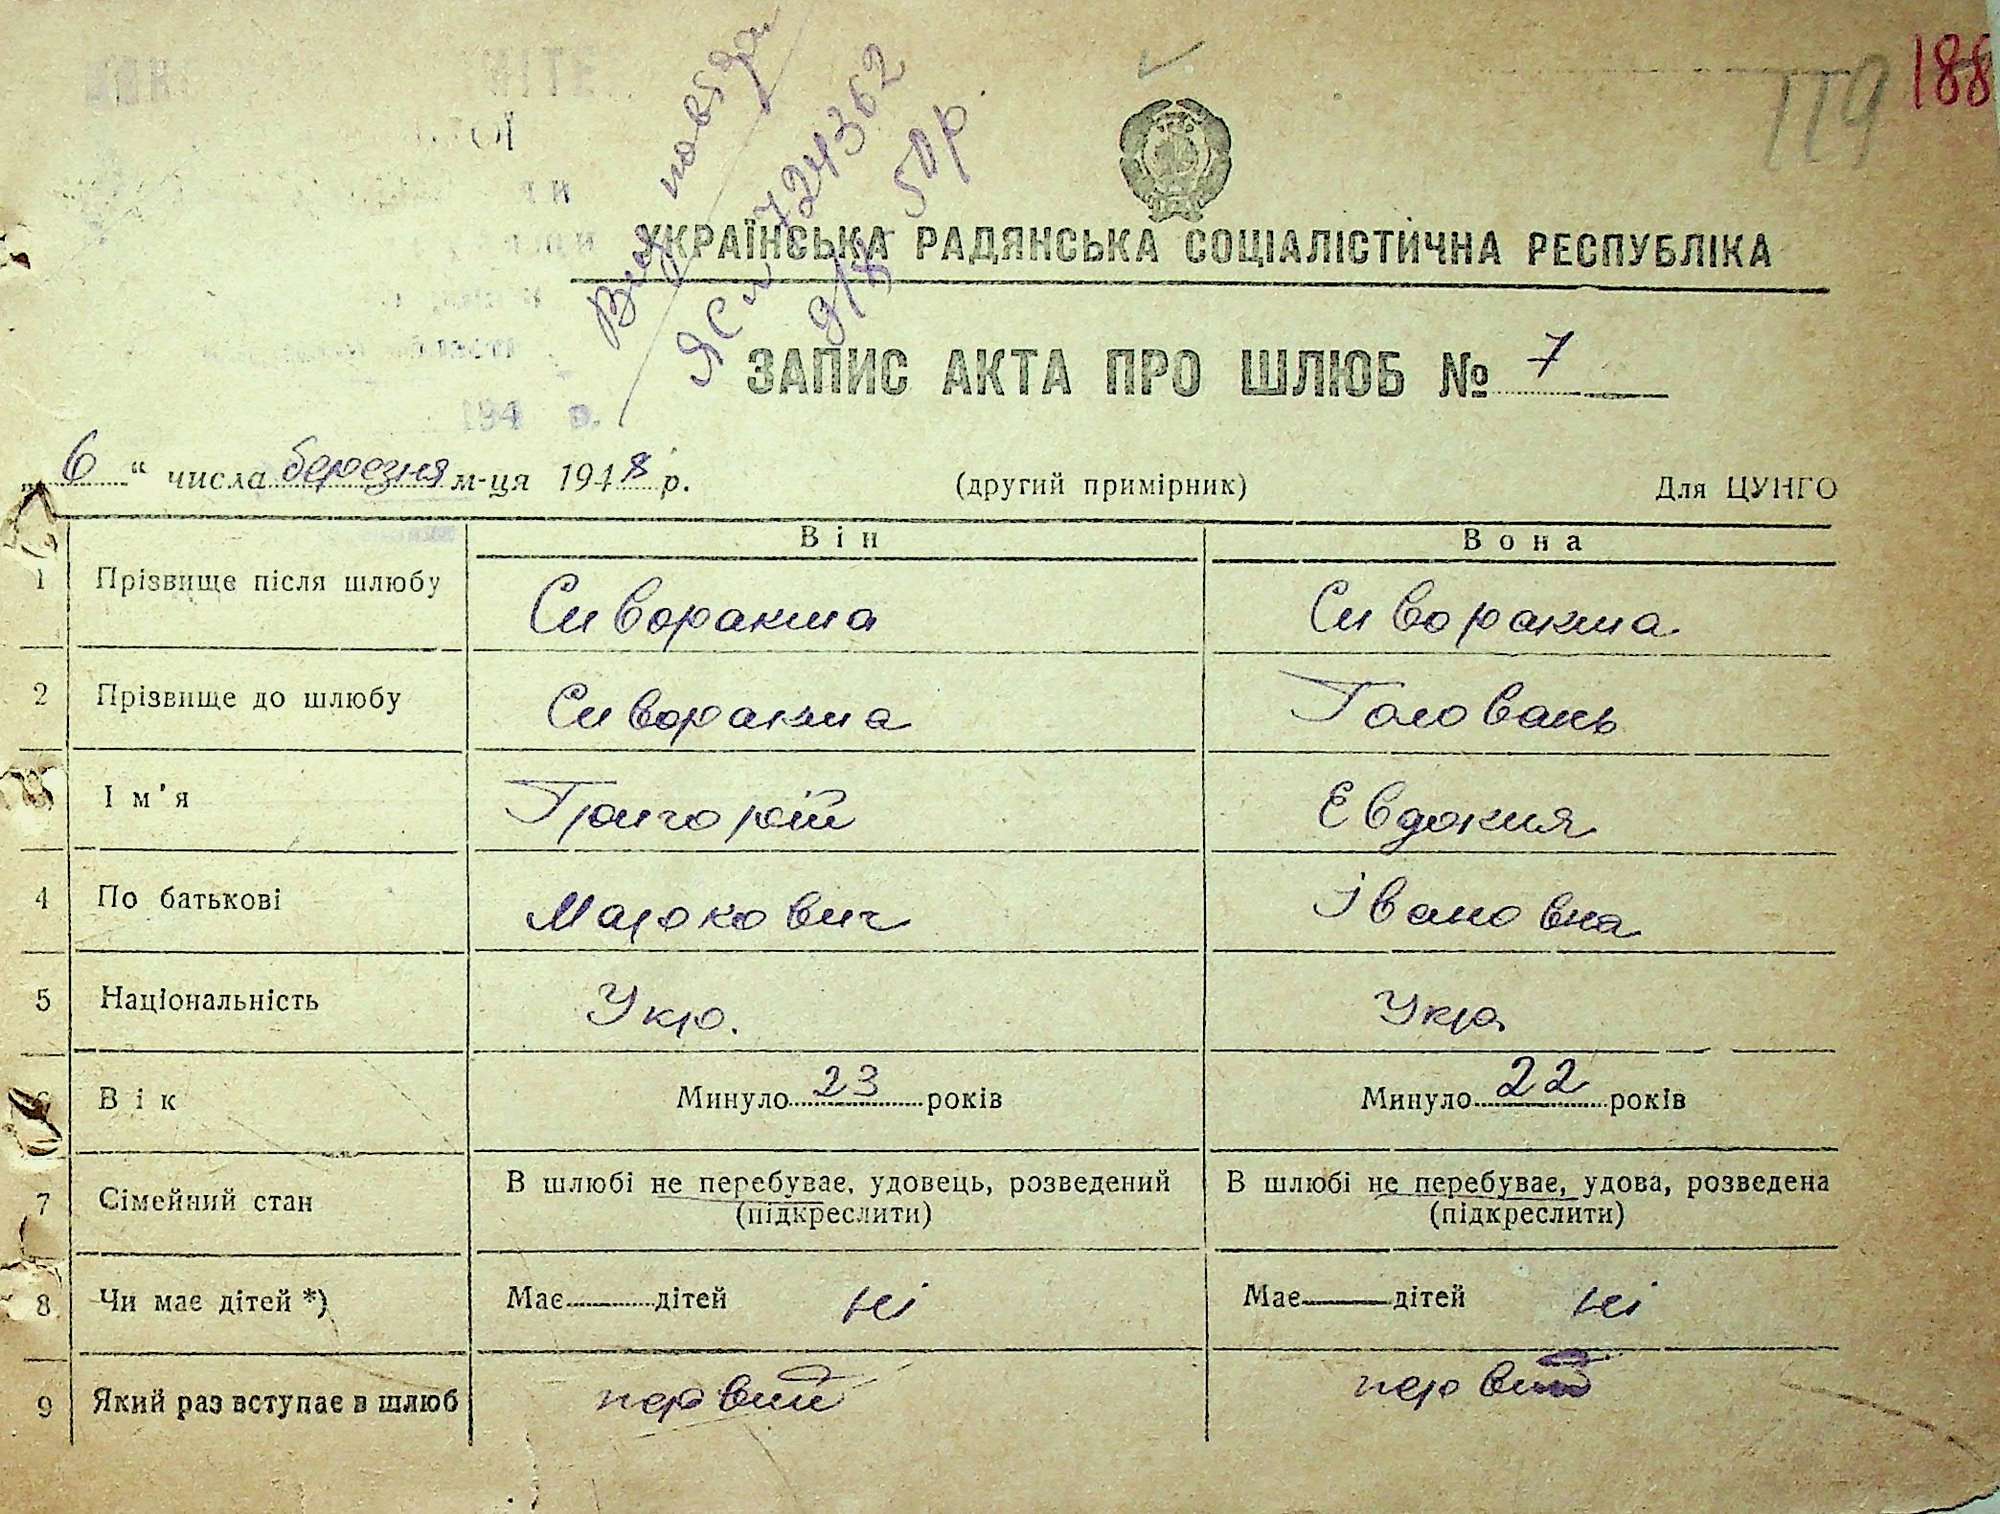 188
119
УКРАЇНСЬКА РАДЯНСЬКА СОЦІАЛІСТИЧНА РЕСПУБЛІКА
ЯСл 724362
50р
ЗАПИС АКТА ПРО ШЛЮБ № 7
„ 6 “ числа березня м-ця 1948 р. (другий примірник) Для ЦУНГО
Він Вона
1 Прізвище після шлюбу Сиворакша Сиворакша
2 Прізвище до шлюбу Сиворакша Головань
Ім'я Григорій Евдокия
4 По батькові Маркович Івановна
5 Національність Укр. Укр.
6 Вік Минуло 23 років Минуло 22 років
7 Сімейний стан В шлюбі не перебуває, удовець, розведений В шлюбі не перебуває, удова, розведена
(підкреслити) (підкреслити)
8 Чи має дітей *) Має дітей ні Має дітей ні
9 Який раз вступає в шлюб первий первий